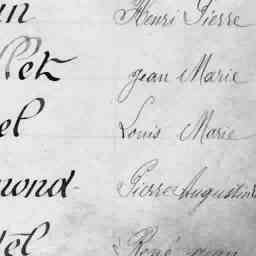 un Henri Pierre
llet Jean Marie
el Louis Marie
mond Pierre Augustin
tel René Jean